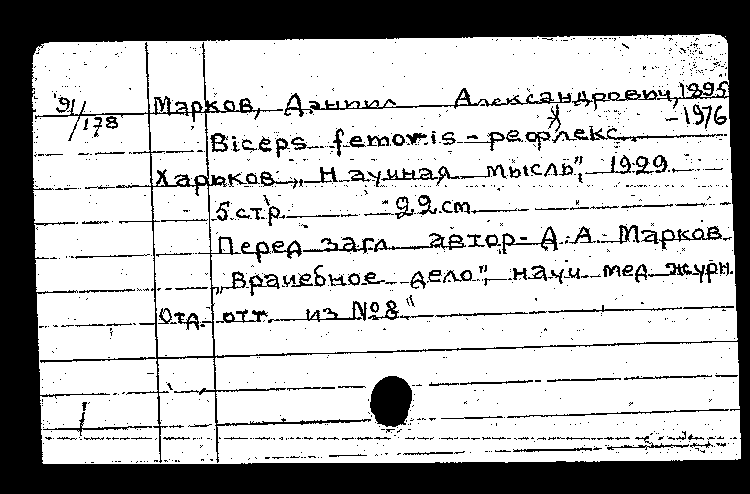 91/178 Марков, Даниил Александрович, 1895
-1976
Biceps femoris - рефлекс.
Харьков „Научная мысль", 1929.
5 стр. 22 cm.
Перед загл. автор - Д. А. Марков
„Врачебное дело", научн. мед. журн.
Отд. отт. из №8"